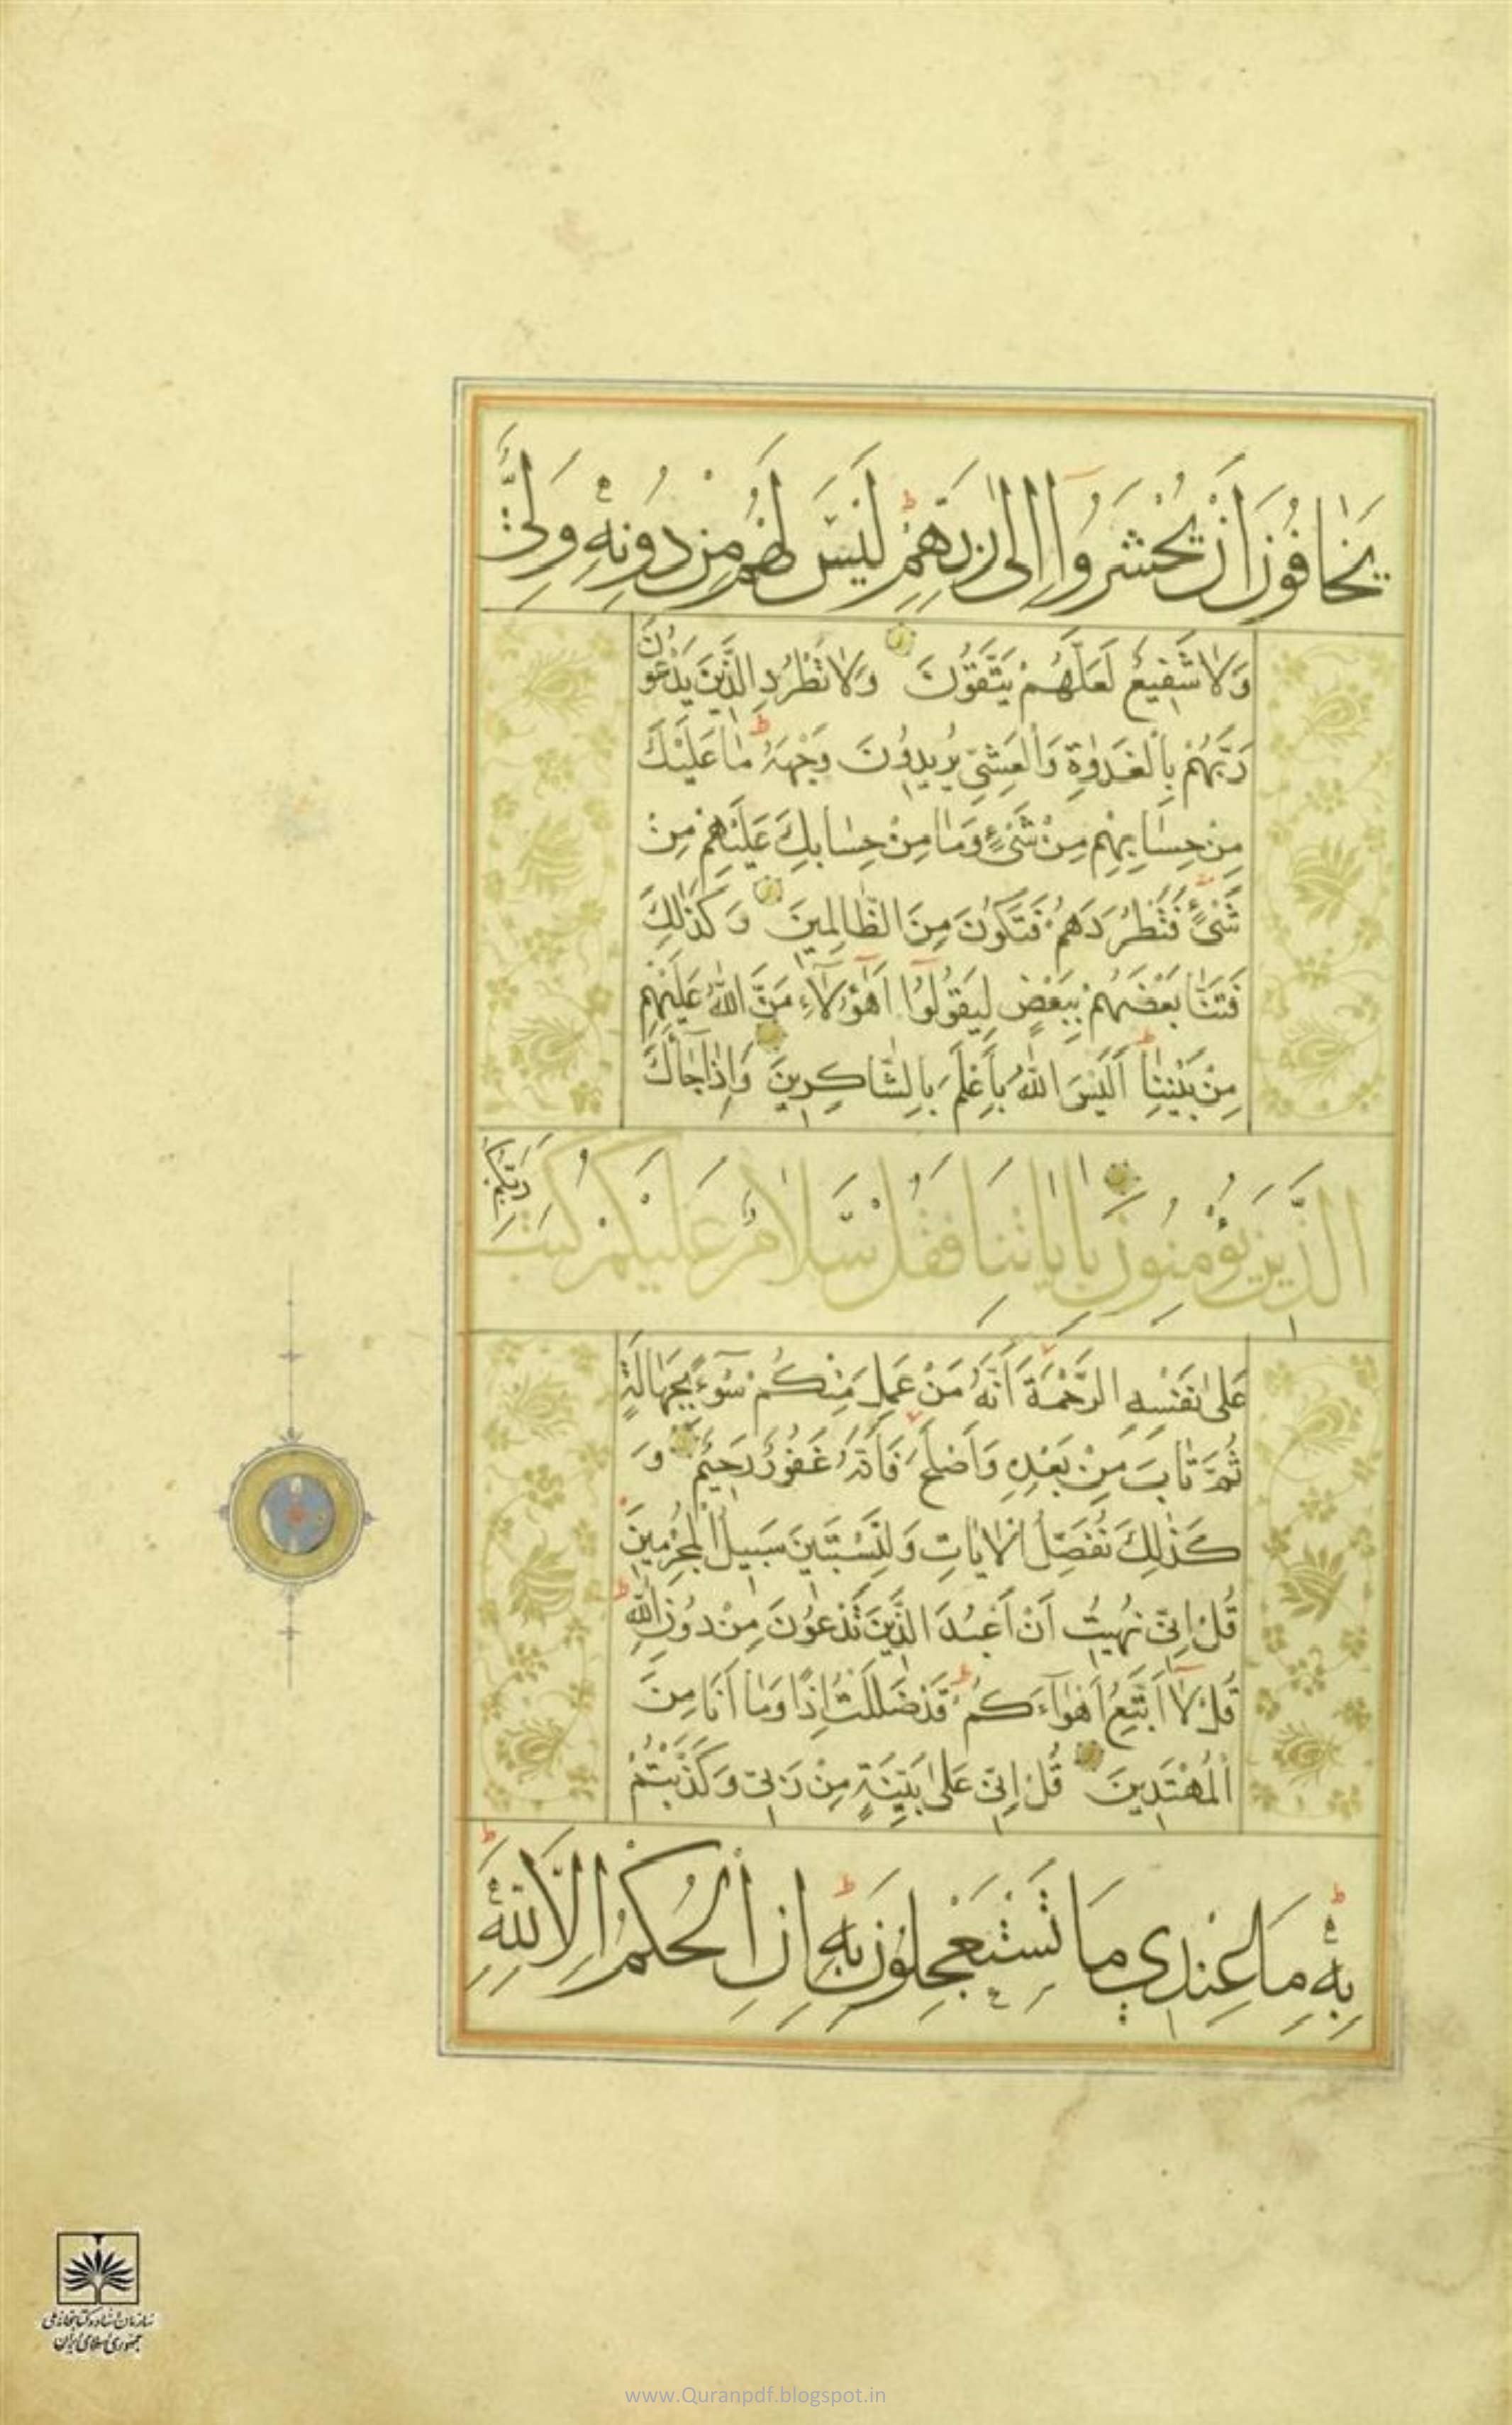 يَخَافُونَ أَنْ يُحْشَرُوا إِلَىٰ رَبِّهِمْ لَيْسَ لَهُمْ مِنْ دُونِهِ وَلِيٌّ
وَلَا شَفِيعٌ لَعَلَّهُمْ يَتَّقُونَ وَلَا تَطْرُدِ الَّذِينَ يَدْعُونَ
رَبَّهُمْ بِالْغَدٰوةِ وَالْعَشِيِّ يُرِيدُونَ وَجْهَهُ مَا عَلَيْكَ
مِنْ حِسَابِهِمْ مِنْ شَيْءٍ وَمَا مِنْ حِسَابِكَ عَلَيْهِمْ مِنْ
شَيْءٍ فَتَطْرُدَهُمْ فَتَكُونَ مِنَ الظَّالِمِينَ وَكَذٰلِكَ
فَتَنَّا بَعْضَهُمْ بِبَعْضٍ لِيَقُولُوا أَهٰؤُلَاءِ مَنَّ اللّٰهُ عَلَيْهِمْ
مِنْ بَيْنِنَا أَلَيْسَ اللّٰهُ بِأَعْلَمَ بِالشَّاكِرِينَ وَإِذَا جَاءَكَ
الَّذِينَ يُؤْمِنُونَ بِآيَاتِنَا فَقُلْ سَلَامٌ عَلَيْكُمْ كَتَبَ رَبُّكُمْ
عَلَىٰ نَفْسِهِ الرَّحْمَةَ أَنَّهُ مَنْ عَمِلَ مِنْكُمْ سُوءًا بِجَهَالَةٍ
ثُمَّ تَابَ مِنْ بَعْدِهِ وَأَصْلَحَ فَأَنَّهُ غَفُورٌ رَحِيمٌ وَ
كَذٰلِكَ نُفَصِّلُ الْآيَاتِ وَلِتَسْتَبِينَ سَبِيلُ الْمُجْرِمِينَ
قُلْ إِنِّي نُهِيتُ أَنْ أَعْبُدَ الَّذِينَ تَدْعُونَ مِنْ دُونِ اللّٰهِ
قُلْ لَا أَتَّبِعُ أَهْوَاءَكُمْ قَدْ ضَلَلْتُ إِذًا وَمَا أَنَا مِنَ
الْمُهْتَدِينَ قُلْ إِنِّي عَلَىٰ بَيِّنَةٍ مِنْ رَبِّي وَكَذَّبْتُمْ
بِهِ مَا عِنْدِي مَا تَسْتَعْجِلُونَ بِهِ إِنِ الْحُكْمُ إِلَّا لِلّٰهِ
سازمان اسناد و کتابخانه ملی
جمهوری اسلامی ایران
www.Quranpdf.blogspot.in